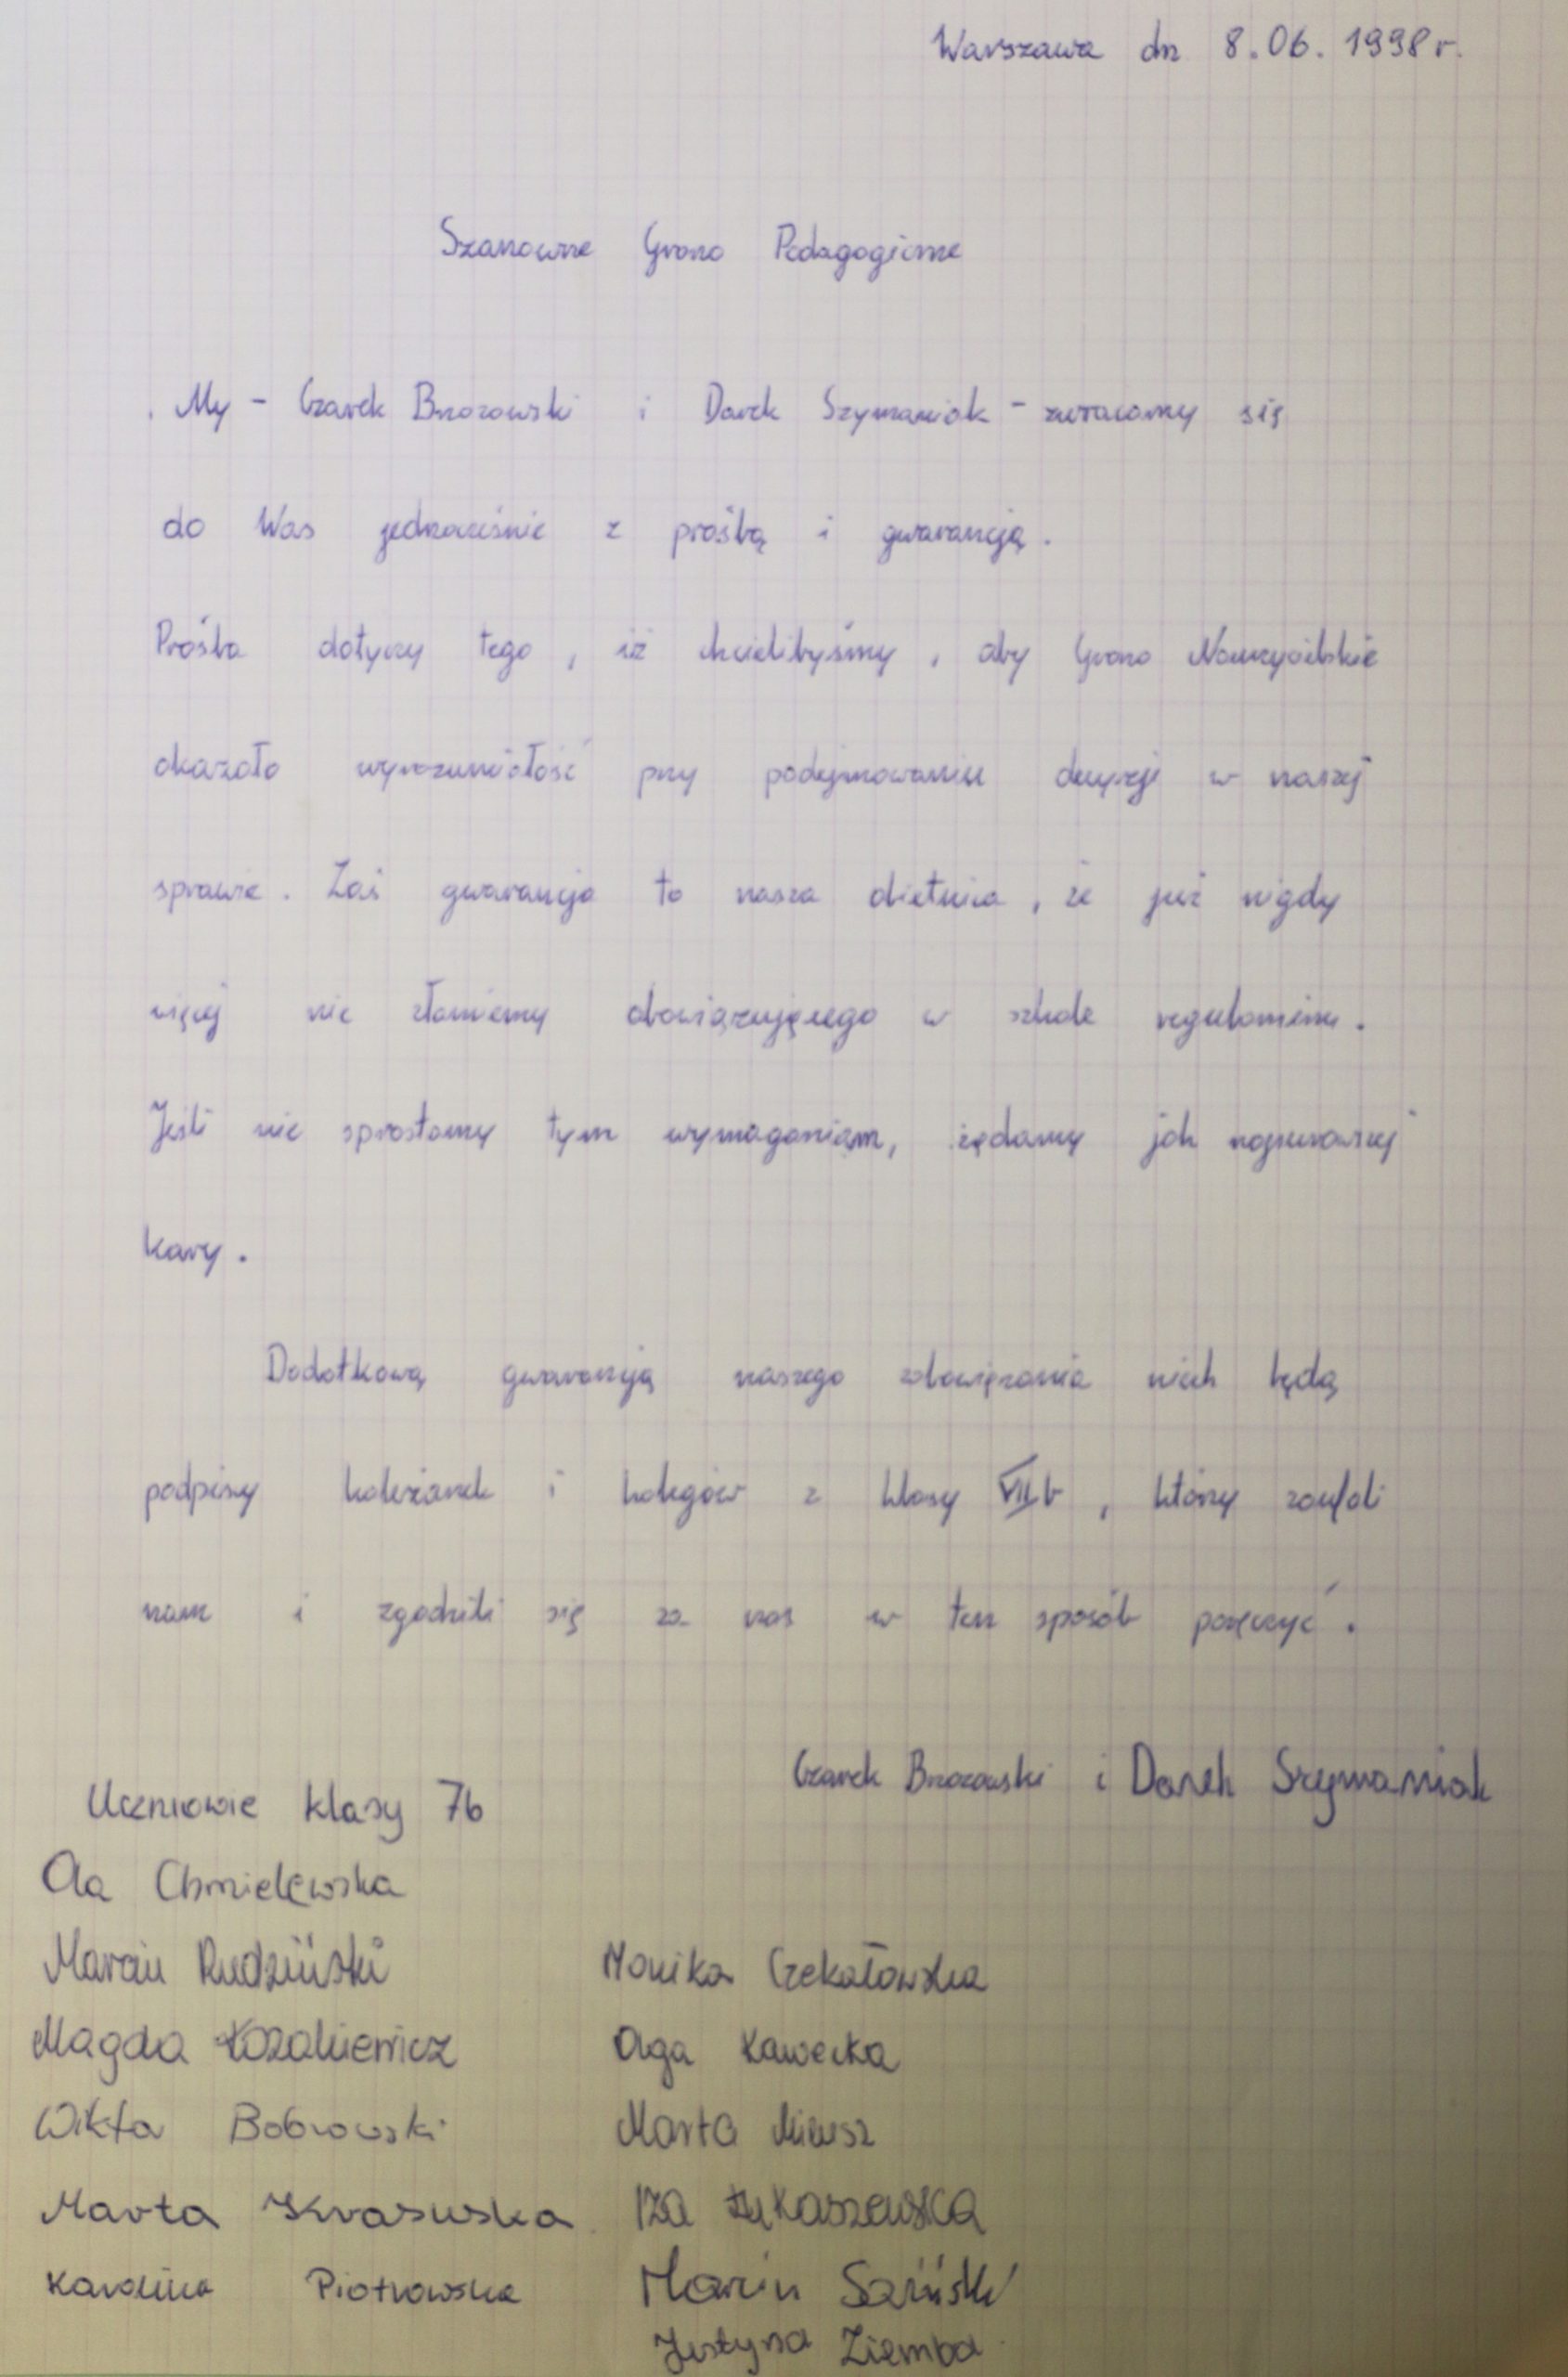 Warszawa dn 8.06.1998r.
Szanowne Grono Pedagogiczne
My - Czarek Brzozowski i Darek Szymaniak - zwracamy się
do Was jednocześnie z prośbą i gwarancją.
Prośba dotyczy tego, iż chcielibyśmy, aby Grono Nauczycielskie
okazało wyrozumiałość przy podejmowaniu decyzji w naszej
sprawie. Zaś gwarancja to nasza obietnica, że już nigdy
więcej nie złamiemy obowiązującego w szkole regulaminu.
Jeśli nie sprostamy tym wymaganiom, żądamy jak najsurowszej
kary.
Dodatkową gwarancją naszego zobowiązania niech będą
podpisy koleżanek i kolegów z klasy VII b, którzy zaufali
nam i zgodzili się za nas w ten sposób poręczyć.
Czarek Brzozowski i Darek Szymaniak
Uczniowie klasy 7b
Ola Chmielewska
Marcin Rudziński Monika Czekałowska
Magda Łozakiewicz Olga Kawecka
Wiktor Bobrowski Marta
Marta Krasuska Iza Łukaszewska
Karolina Piotrowska Marcin
Justyna Ziemba